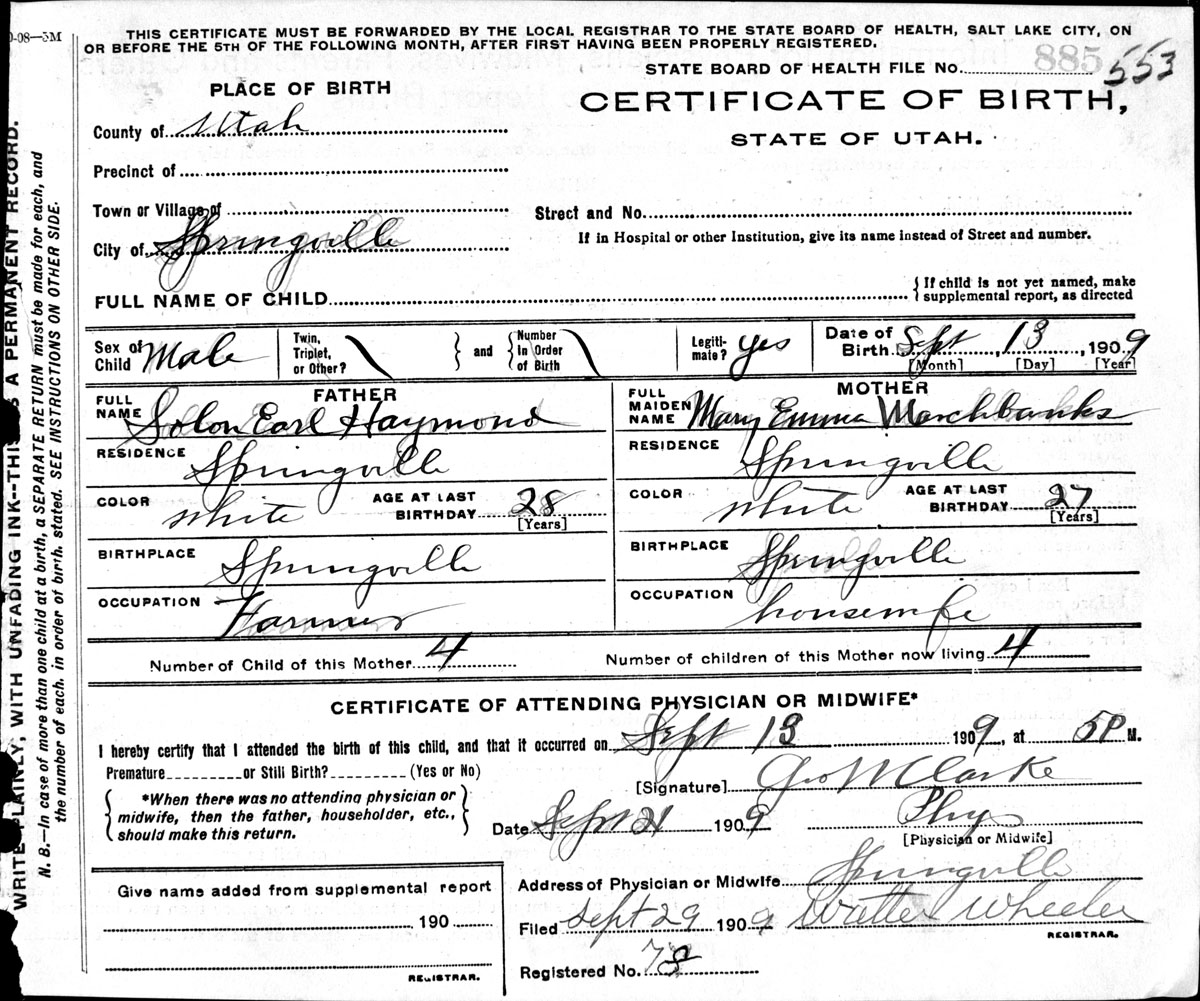 0-08—3M
THIS CERTIFICATE MUST BE FORWARDED BY THE LOCAL REGISTRAR TO THE STATE BOARD OF HEALTH, SALT LAKE CITY, ON
OR BEFORE THE 5TH OF THE FOLLOWING MONTH, AFTER FIRST HAVING BEEN PROPERLY REGISTERED.
STATE BOARD OF HEALTH FILE No. 885 553
PLACE OF BIRTH
CERTIFICATE OF BIRTH,
STATE OF UTAH.
County of Utah
Precinct of
Town or Village of
Street and No.
City of Springville
If in Hospital or other Institution, give its name instead of Street and number.
FULL NAME OF CHILD
{If child is not yet named, make
supplemental report, as directed
Sex of Child Male
Twin, Triplet, or Other?
} and {
Number In Order of Birth
Legiti-mate? yes
Date of Birth Sept, 13, 1909
[Month] [Day] [Year]
FATHER
MOTHER
FULL NAME Solon Earl Haymond
FULL MAIDEN NAME Mary Emma Marchbanks
RESIDENCE Springville
RESIDENCE Springville
COLOR White AGE AT LAST BIRTHDAY 28 [Years]
COLOR White AGE AT LAST BIRTHDAY 27 [Years]
BIRTHPLACE Springville
BIRTHPLACE Springville
OCCUPATION Farmer
OCCUPATION housewife
Number of Child of this Mother 4
Number of children of this Mother now living 4
CERTIFICATE OF ATTENDING PHYSICIAN OR MIDWIFE*
I hereby certify that I attended the birth of this child, and that it occurred on Sept 13 1909, at 5P M.
Premature or Still Birth? (Yes or No)
[Signature] Geo W Clarke
{ *When there was no attending physician or
midwife, then the father, householder, etc.,
should make this return. }
Date Sept 21 1909 Phy
[Physician or Midwife]
Give name added from supplemental report
190
REGISTRAR.
Address of Physician or Midwife Springville
Filed Sept 29 1909 Wheeler
REGISTRAR.
Registered No.
WRITE PLAINLY, WITH UNFADING INK--THIS IS A PERMANENT RECORD.
N. B.—In case of more than one child at a birth, a SEPARATE RETURN must be made for each, and
the number of each, in order of birth, stated. SEE INSTRUCTIONS ON OTHER SIDE.